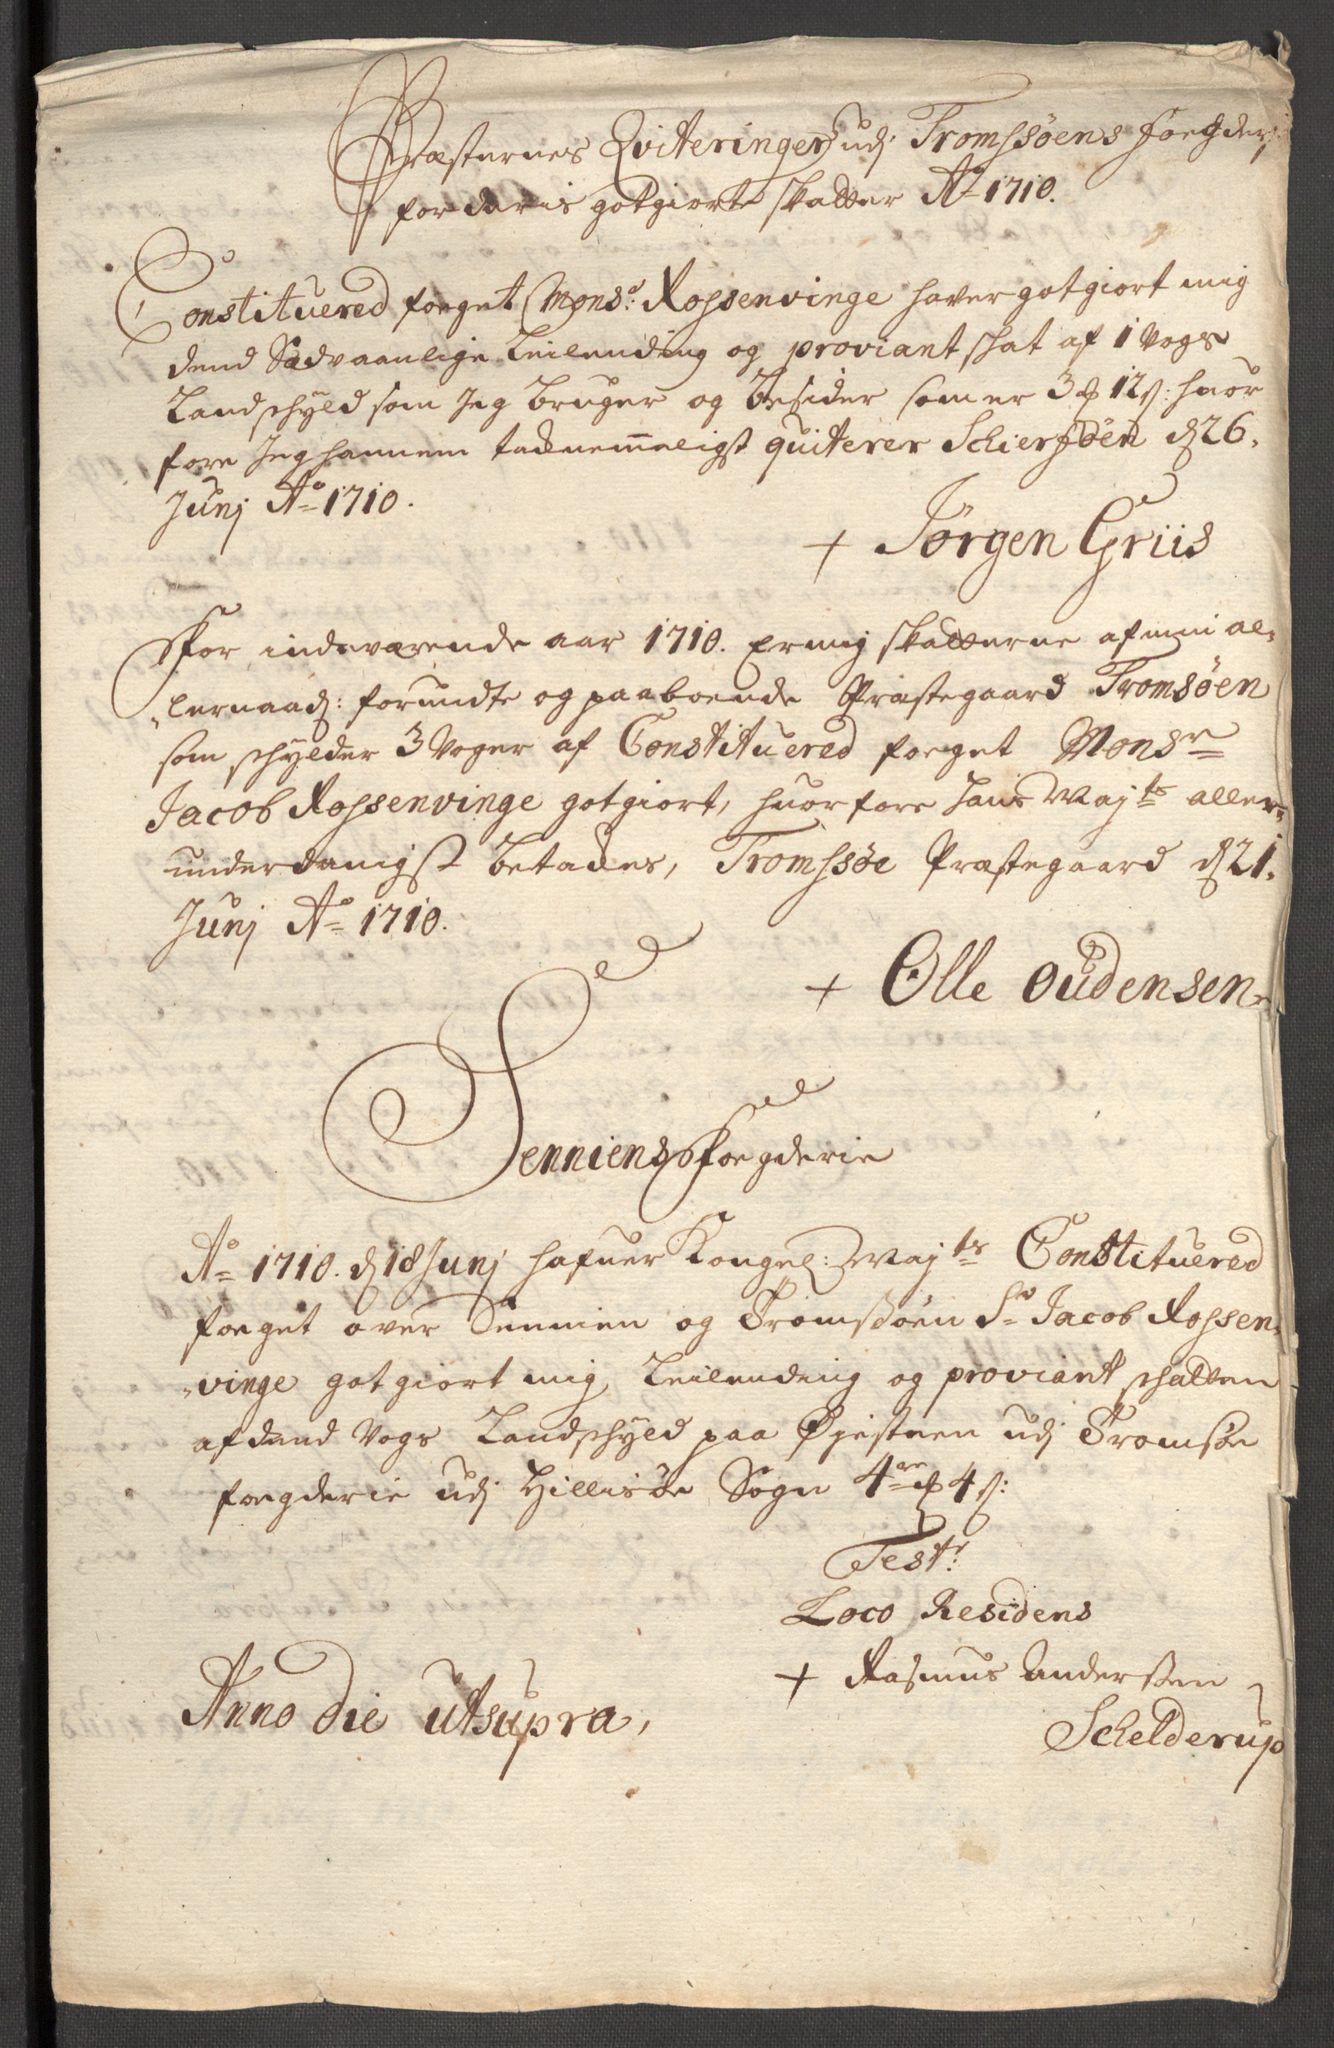 Præsternes Qviteringer udj Tromssøens foegderj
for deris gotgiorte skatter Ao 1710.
Constituered foeget Monsr: Rossenvinge haver gotgiort mig
dend Sædvaanlige Leilending og proviant schat af 1 Vogs
Landschyld som Jeg bruger og besider som er 3 12 s: huor
fore Jeg hannem tacknemmeligst quiterer Schiersøen d 26.
Junj Ao 1710.
+ Jørgen Griis
For indeværende aar 1710. Er mig skatterne af min al-
lernaad: forundte og paaboende Præstegaard Tromsøen
som schylder 3 Voger af Constituered foeget Monsr
Jacob Rossenvinge gotgiort, huorfore hans Majts aller-
underdanigst betackes, Tromssøe Præstegaard d 21.
Junj Ao 1710.
+ Olle Oudensen
Senniens Foegderie
Ao 1710. d 18 Junj hafuer Kongel: Majts Constituered
foeget over Sennien og Tromsøen Sr Jacob Rossen-
vinge gotgiort mig Leilending og proviant schatten
af dend Vogs Landschyld paa Øjesteen udj Tromsøe
foegderie udj Hillisøe Sogn 4 4 s:
Testr:
Loco Residens
+ Rasmus Anderssen
Schelderup
Anno die utsupra,